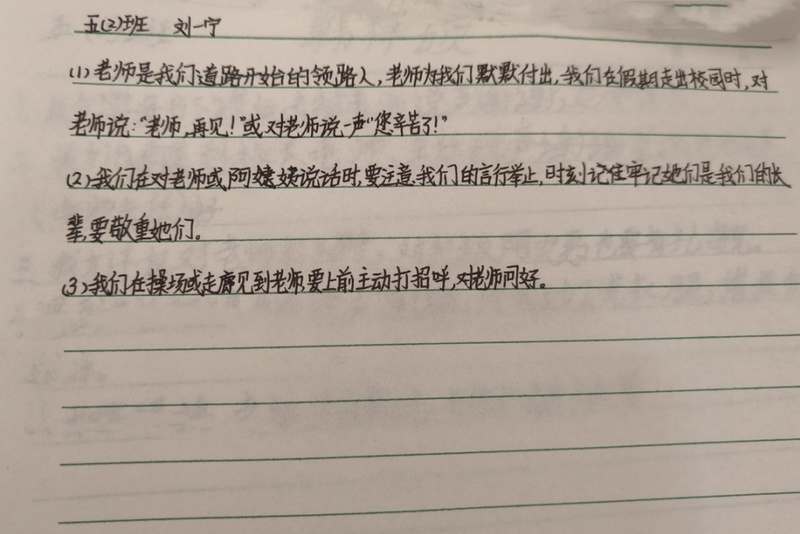 五(2)班 刘一宁
(1)老师是我们道路开始的领路人,老师为我们默默付出,我们在假期走出校园时,对
老师说:“老师,再见!”或对老师说一声“您辛苦了!”
(2)我们在对老师或阿姨说话时,要注意我们的言行举止,时刻记住牢记她们是我们的长
辈,要敬重她们。
(3)我们在操场或走廊见到老师要上前主动打招呼,对老师问好。